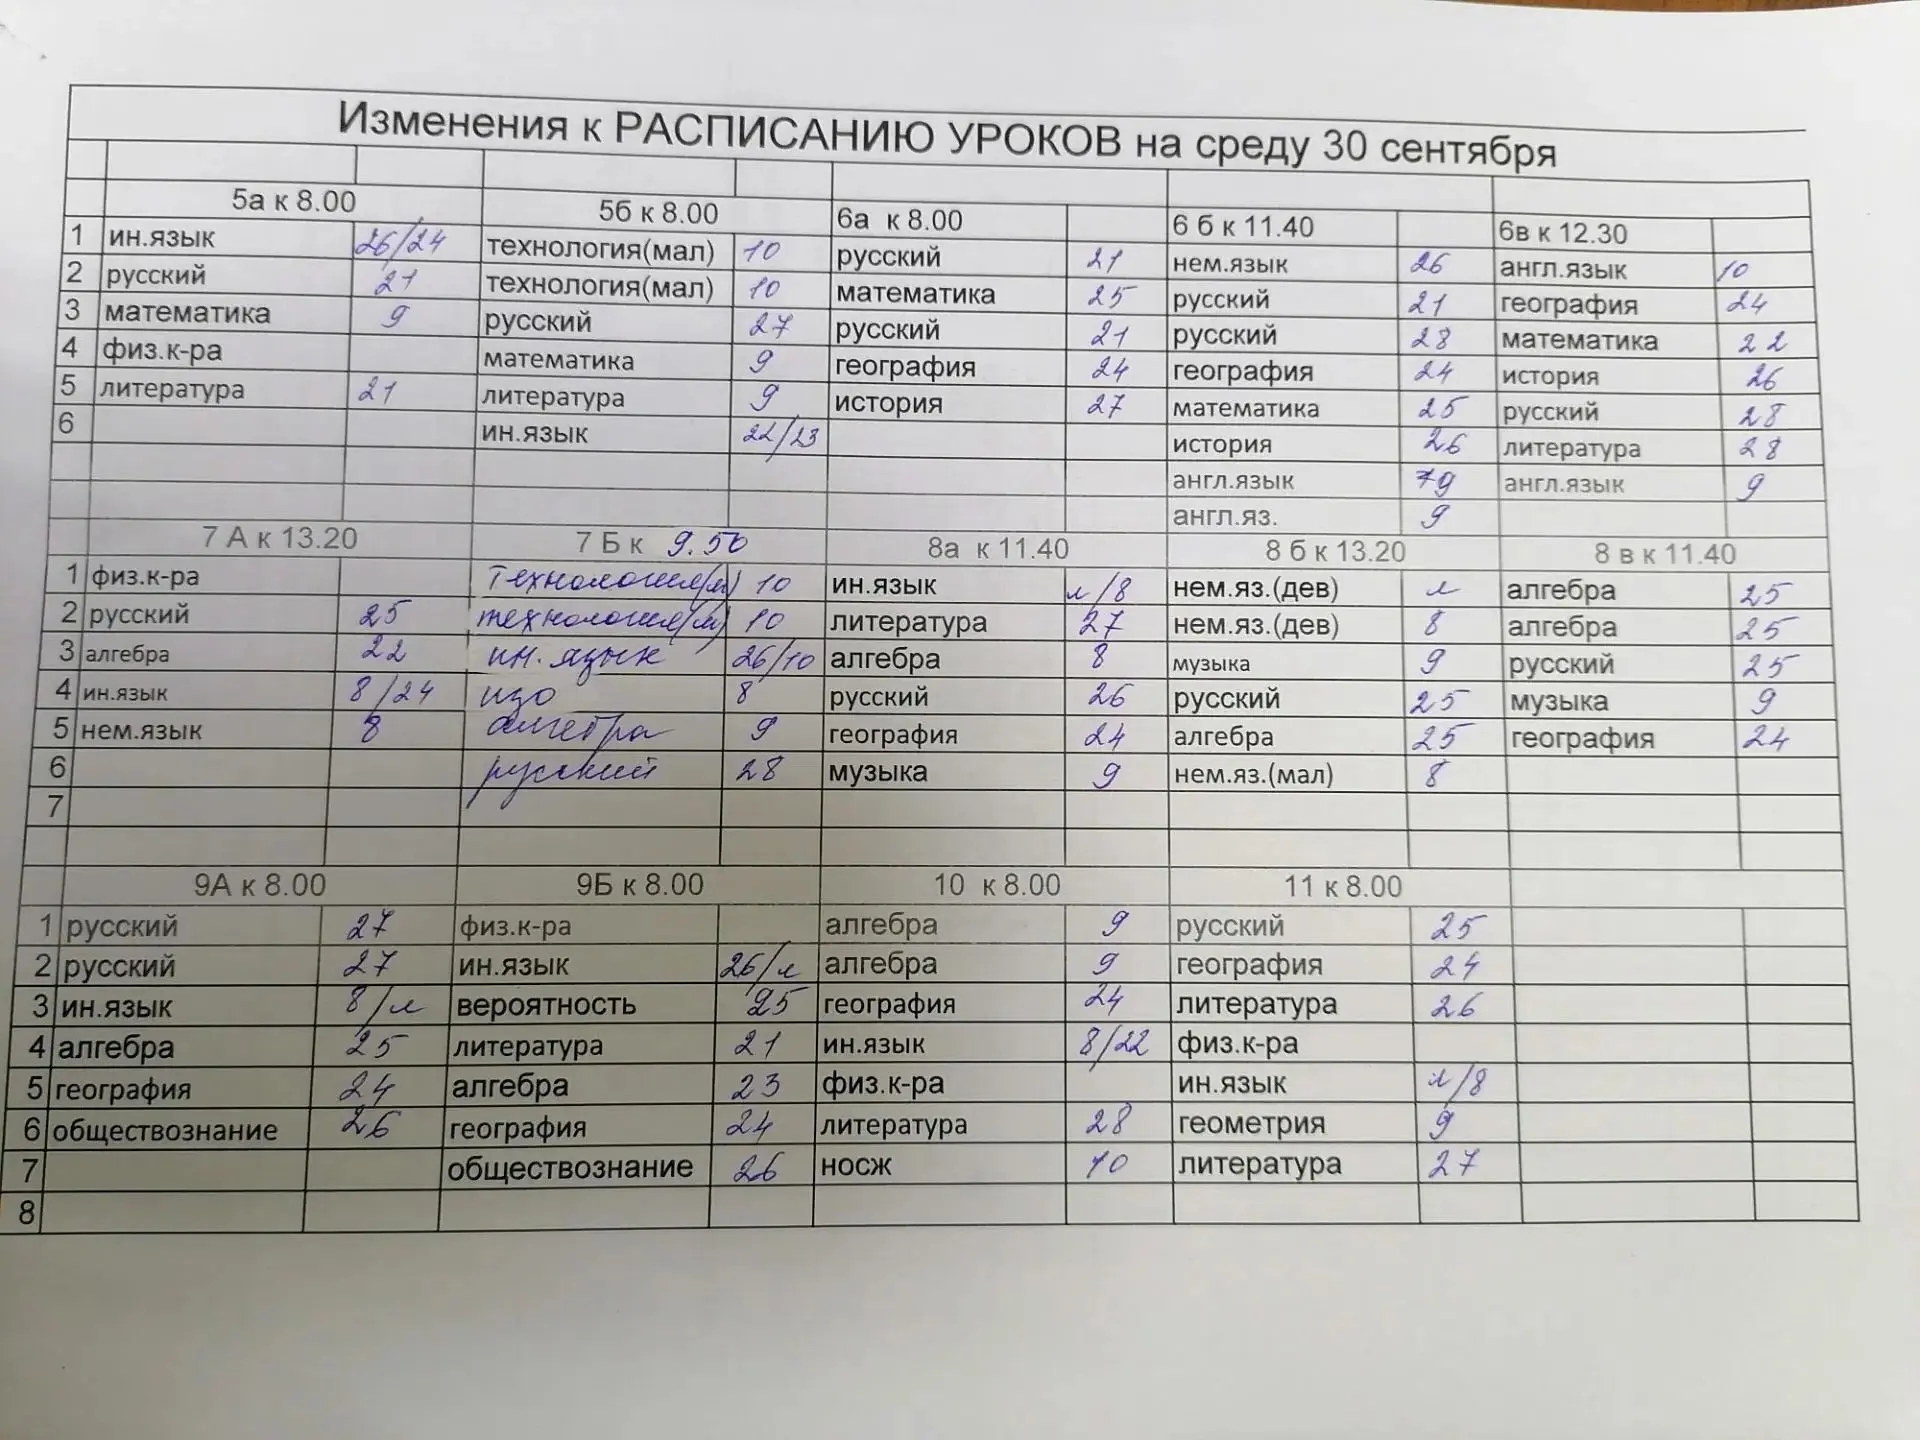 Изменения к РАСПИСАНИЮ УРОКОВ на среду 30 сентября
5а к 8.00 5б к 8.00 6а к 8.00 6 б к 11.40 6в к 12.30
1 ин.язык 26/24 технология(мал) 10 русский 21 нем.язык 26 англ.язык 10
2 русский 21 технология(мал) 10 математика 25 русский 21 география 24
3 математика 9 русский 27 русский 21 русский 28 математика 22
4 физ.к-ра математика 9 география 24 география 24 история 26
5 литература 21 литература 9 история 27 математика 25 русский 28
6 ин.язык 22/23 история 26 литература 28
англ.язык 9 англ.язык 9
англ.яз. 9
7 А к 13.20 7 Б к 9.50 8а к 11.40 8 б к 13.20 8 в к 11.40
1 физ.к-ра технология(м) 10 ин.язык л/8 нем.яз.(дев) л алгебра 25
2 русский 25 технология(м) 10 литература 27 нем.яз.(дев) 8 алгебра 25
3 алгебра 22 ин. язык 26/10 алгебра 8 музыка 9 русский 25
4 ин.язык 8/24 изо 8 русский 26 русский 25 музыка 9
5 нем.язык 8 алгебра 9 география 24 алгебра 25 география 24
6 русский 28 музыка 9 нем.яз.(мал) 8
7
9А к 8.00 9Б к 8.00 10 к 8.00 11 к 8.00
1 русский 27 физ.к-ра алгебра 9 русский 25
2 русский 27 ин.язык 26/л алгебра 9 география 24
3 ин.язык 8/л вероятность 25 география 24 литература 26
4 алгебра 25 литература 21 ин.язык 8/22 физ.к-ра
5 география 24 алгебра 23 физ.к-ра ин.язык л/8
6 обществознание 26 география 24 литература 28 геометрия 9
7 обществознание 26 носж 10 литература 27
8